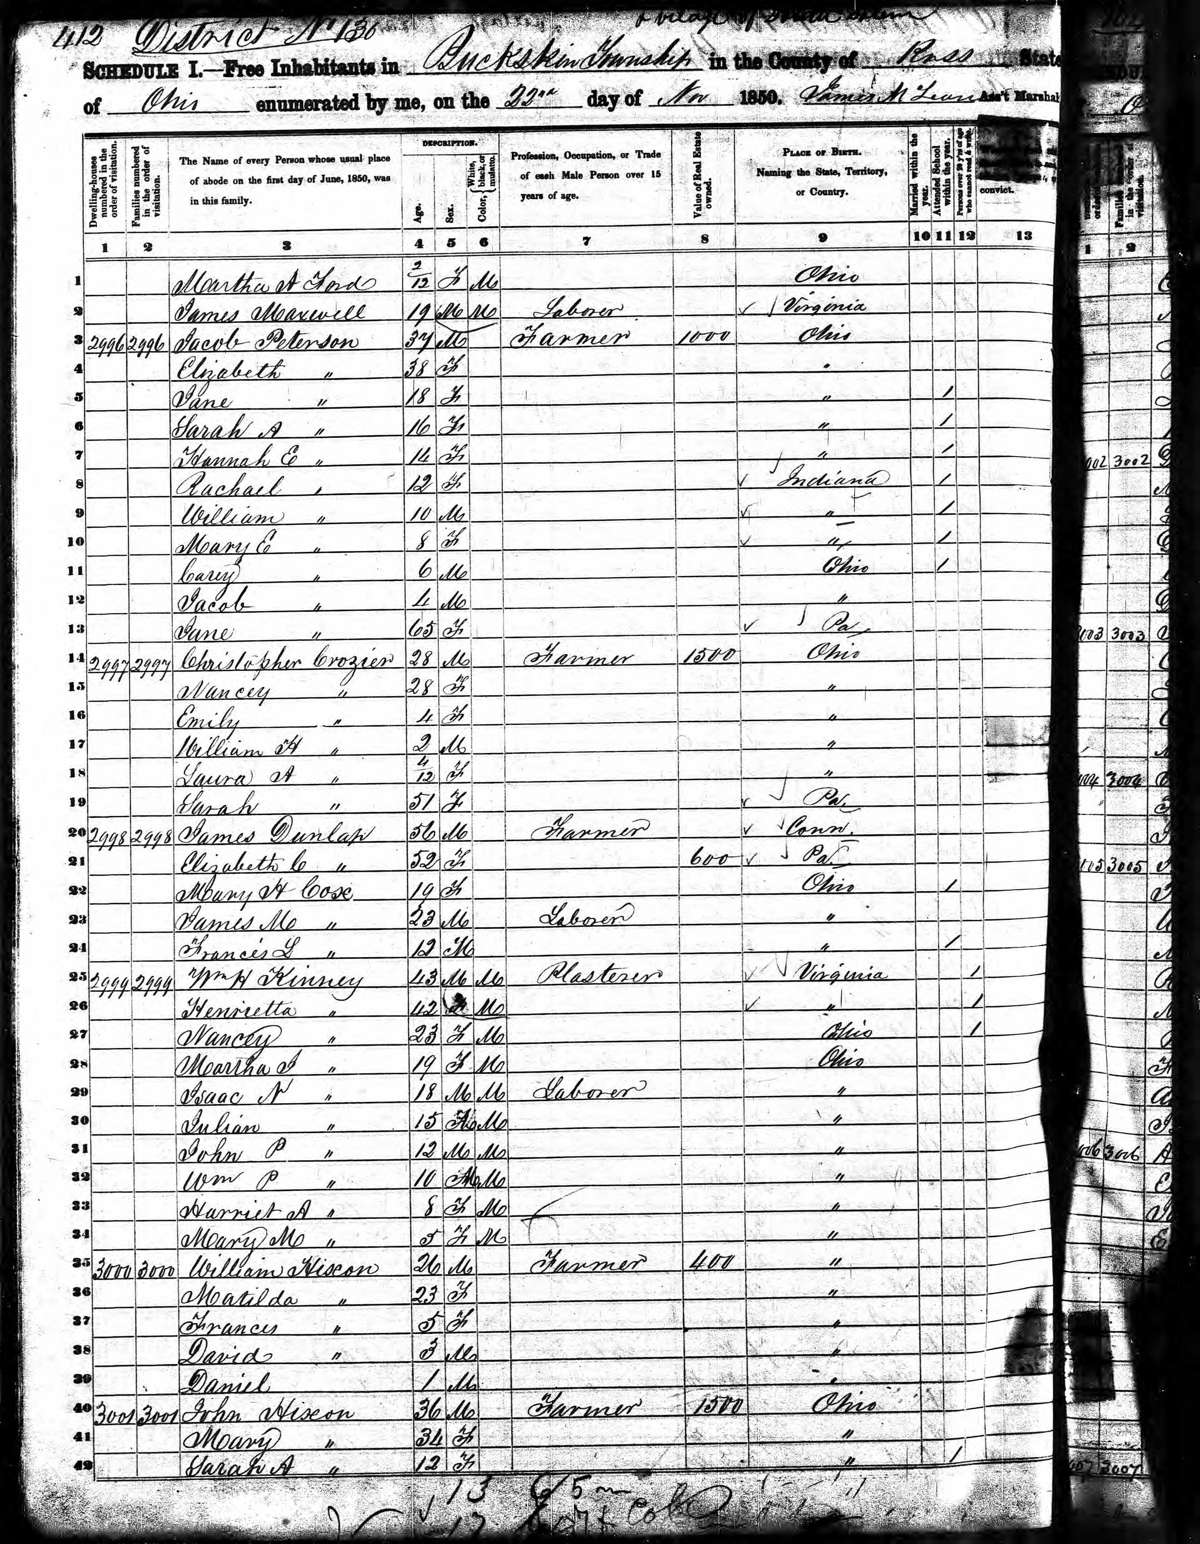 412 District No 130
Schedule I.—Free Inhabitants in Buckskin Township in the County of Ross State
of Ohio enumerated by me, on the 22nd day of Nov 1850. James M Lean Ass't Marshal
Dwelling-house numbered in the order of visitation.
Families numbered in the order of visitation.
The Name of every Person whose usual place of abode on the first day of June, 1850, was in this family.
Description.
Age.
Sex.
Color, White, black, or mulatto.
Profession, Occupation, or Trade of each Male Person over 15 years of age.
Value of Real Estate owned.
Place of Birth. Naming the State, Territory, or Country.
Married within the year.
Attended School within the year.
Persons over 20 y'rs of age who cannot read & write.
convict.
1 2 3 4 5 6 7 8 9 10 11 12 13
1 Martha A Ford 2/12 F M Ohio
2 James Maxwell 19 M M Laborer Virginia
3 2996 2996 Jacob Peterson 37 M Farmer 1000 Ohio
4 Elizabeth " 38 F "
5 Jane " 18 F " 1
6 Sarah A " 16 F " 1
7 Hannah E " 14 F " 1
8 Rachael " 12 F Indiana 1
9 William " 10 M " 1
10 Mary E " 8 F " 1
11 Carey " 6 M Ohio 1
12 Jacob 4 M "
13 Jane " 65 F Pa
14 2997 2997 Christopher Crozier 28 M Farmer 1500 Ohio
15 Nancey " 28 F "
16 Emily " 4 F "
17 William H " 2 M "
18 Laura A " 4/12 F "
19 Sarah " 51 F Pa.
20 2998 2998 James Dunlap 56 M Farmer Conn.
21 Elizabeth C " 52 F 600 Pa
22 Mary H Cox 19 F Ohio 1
23 James M " 23 M Laborer "
24 Frances L " 12 M " 1
25 2999 2999 Wm H Kinney 43 M M Plasterer Virginia 1
26 Henrietta " 42 M " 1
27 Nancey " 23 F M Ohio 1
28 Martha J " 19 F M Ohio
29 Isaac N " 18 M M Laborer "
30 Julian " 15 M "
31 John P " 12 M M "
32 Wm P " 10 M M "
33 Harriet A " 8 F M "
34 Mary M " 5 F M "
35 3000 3000 William Hixon 26 M Farmer 400 "
36 Matilda " 23 F "
37 Frances " 5 F "
38 David " 3 M "
39 Daniel 1 M "
40 3001 3001 John Hixon 36 M Farmer 1500 Ohio
41 Mary " 34 F "
42 Sarah A " 12 F " 1
13 65 m
1 2
3002
3003
3004
3005
3006
3007